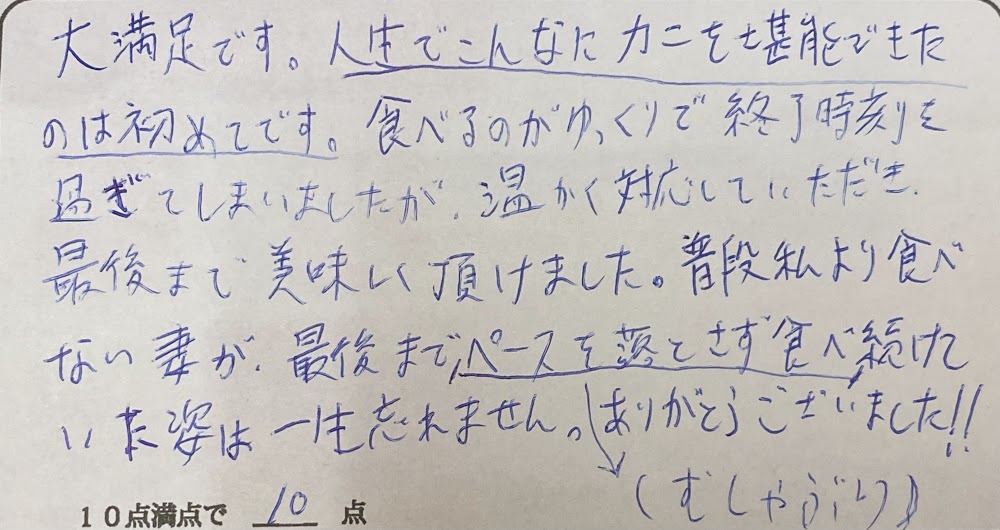 大満足です。人生でこんなにカニを堪能できた
のは初めてです。食べるのがゆっくりで終了時刻を
過ぎてしまいましたが、温かく対応していただき、
最後まで美味しく頂けました。普段私より食べ
ない妻が、最後まで、ペースを落とさず食べ続けて
いた姿は一生忘れません。ありがとうございました!!
(むしゃぶり)
10点満点で 10 点